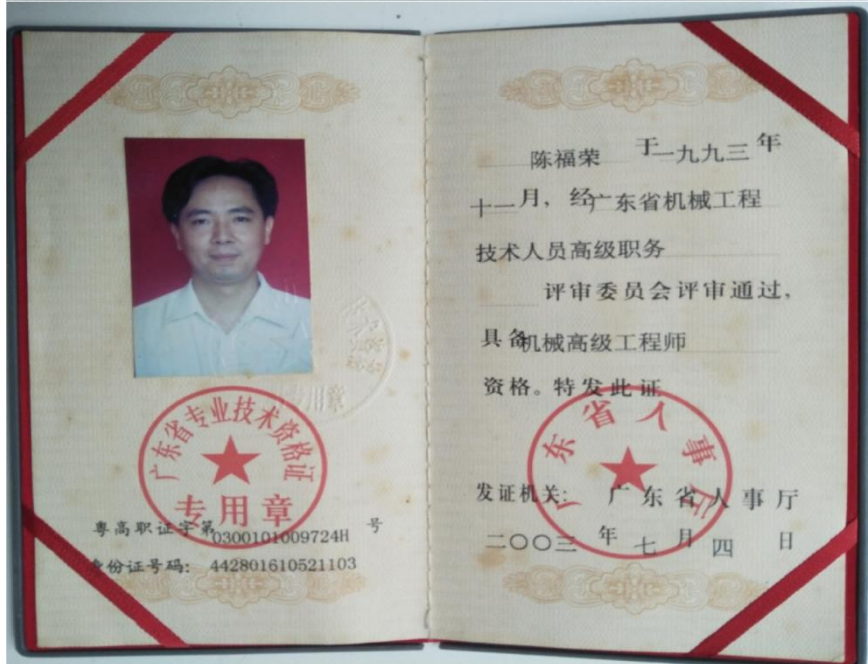 广东省专业技术资格证
专用章
粤高职证字第0300101009724H 号
身份证号码: 442801610521103
陈福荣 于一九九三年
十一月，经广东省机械工程
技术人员高级职务
评审委员会评审通过，
具备机械高级工程师
资格。特发此证
广东省人事厅
发证机关: 广东省人事厅
二〇〇三年七月四日